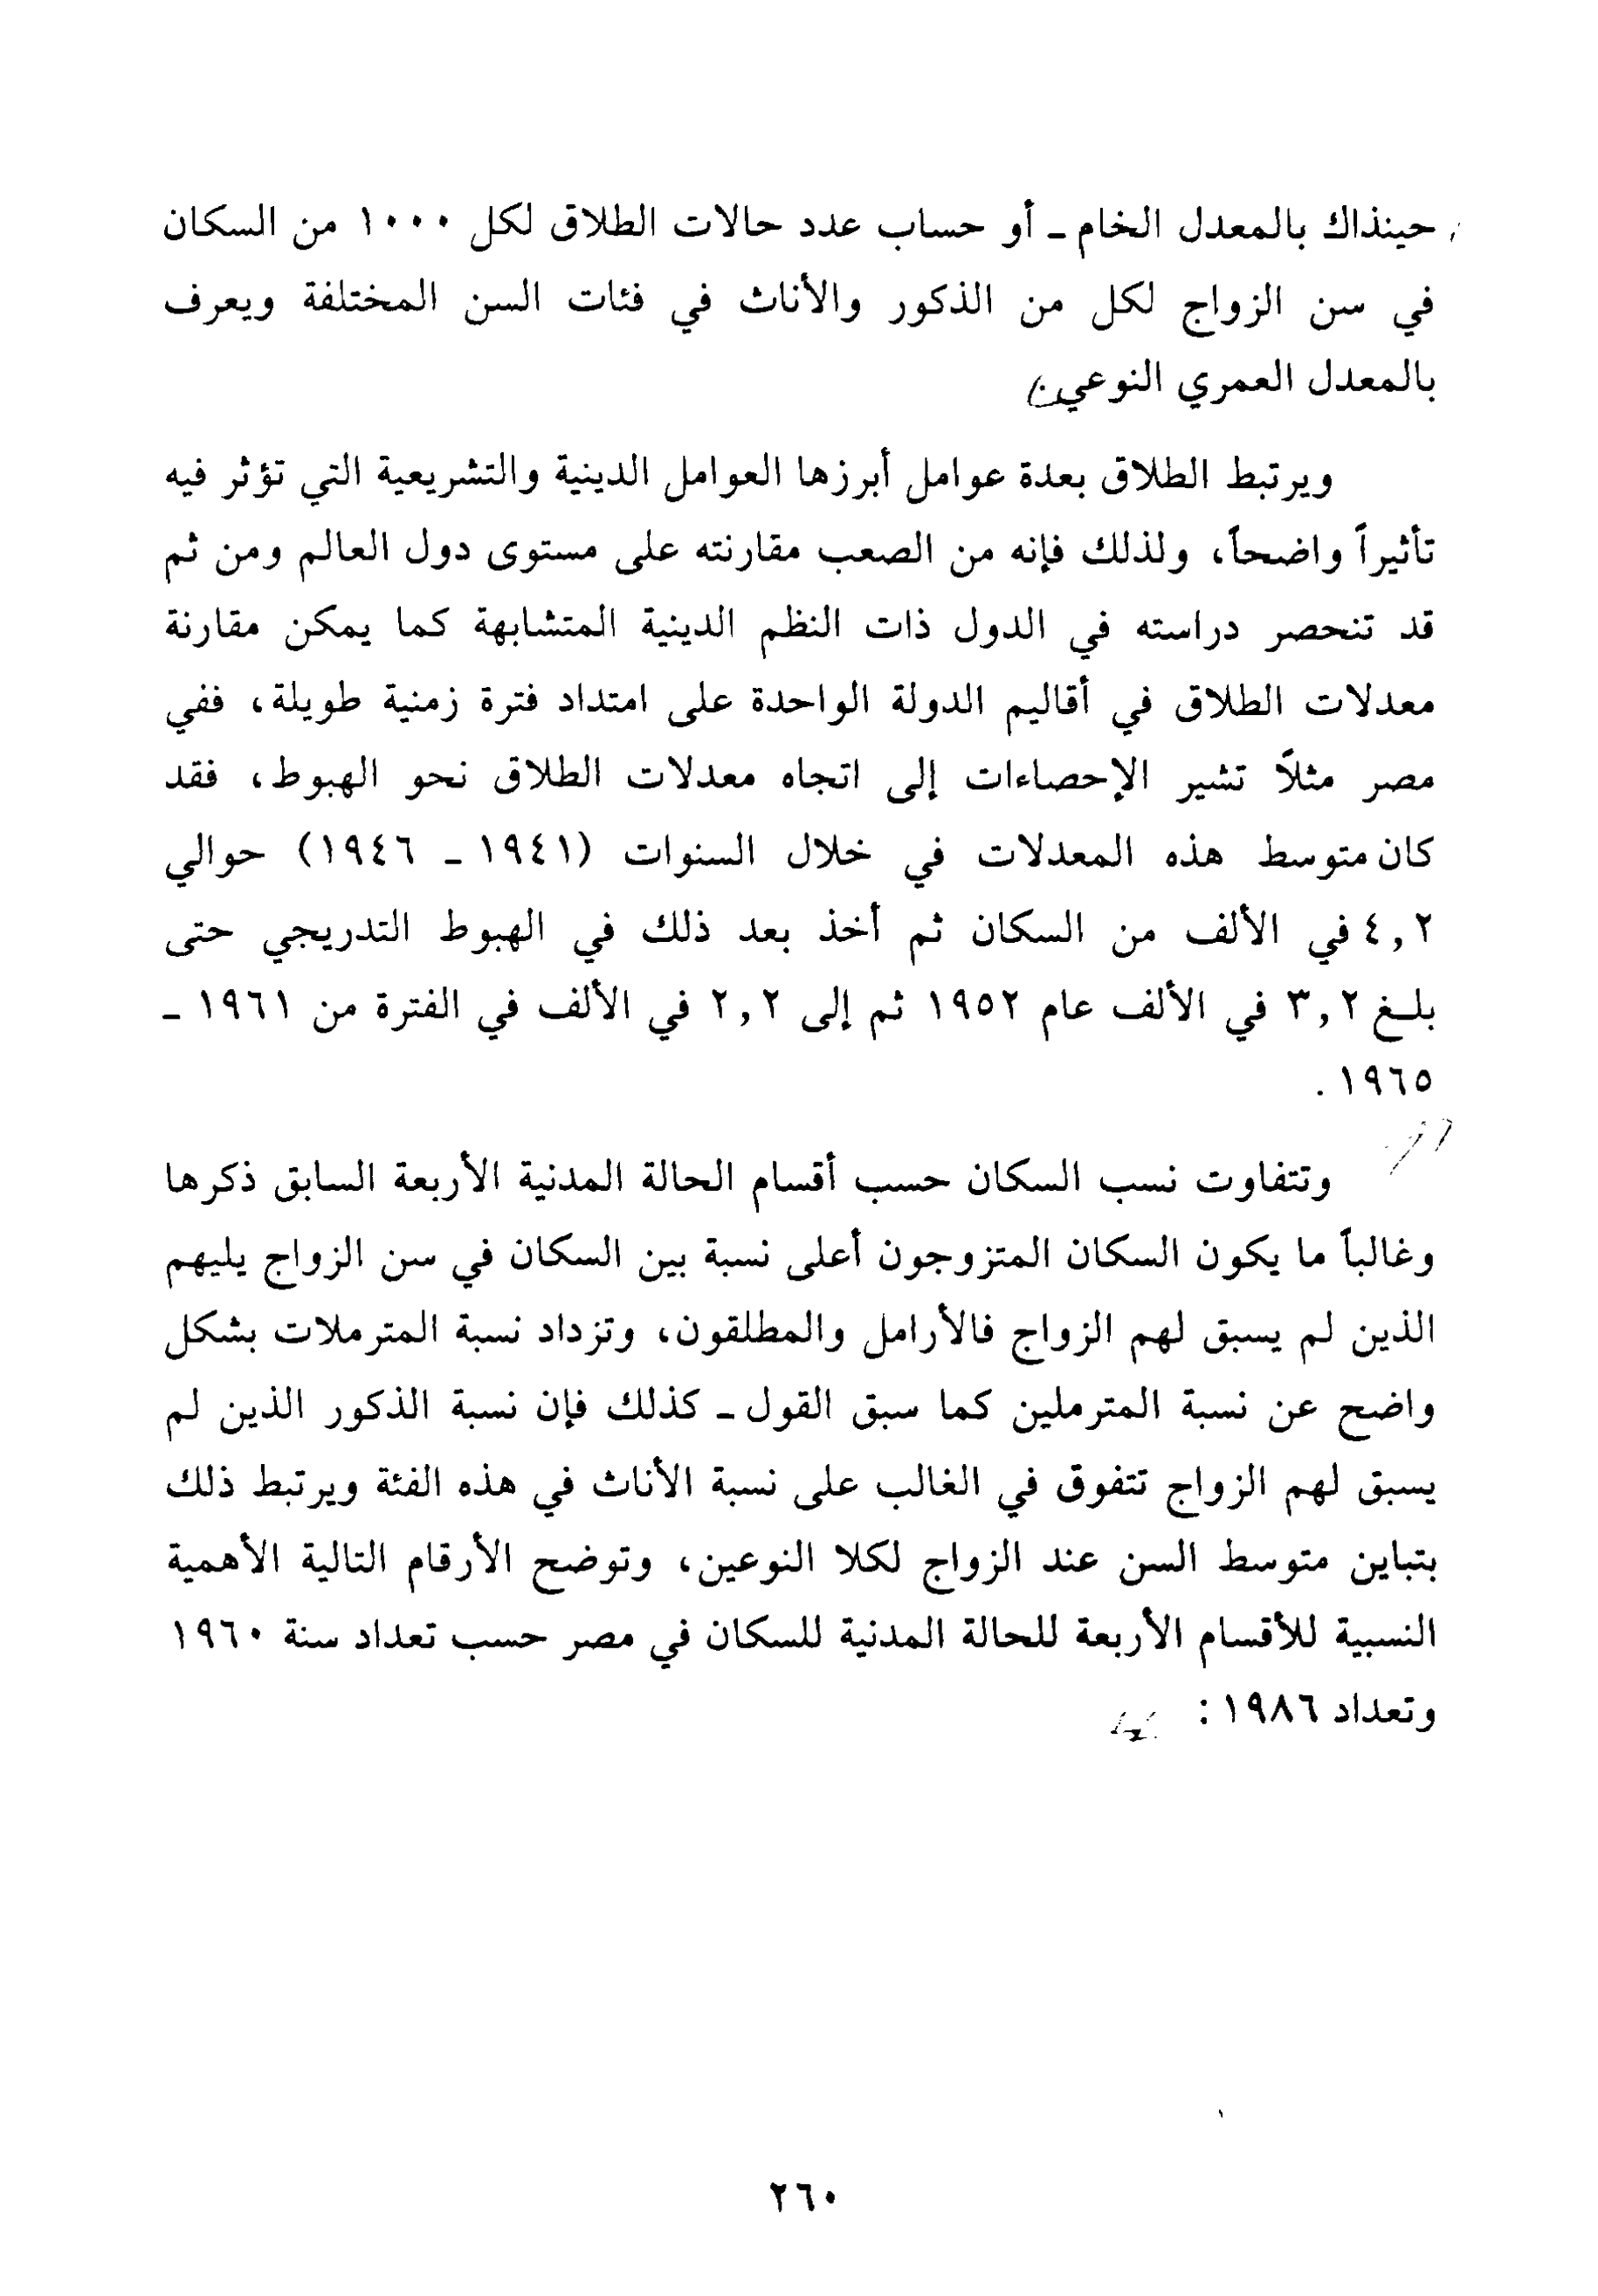 حينذاك بالمعدل الخام ـ أو حساب عدد حالات الطلاق لكل ١٠٠٠ من السكان
في سن الزواج لكل من الذكور والأناث في فئات السن المختلفة ويعرف
بالمعدل العمري النوعي
ويرتبط الطلاق بعدة عوامل أبرزها العوامل الدينية والتشريعية التي تؤثر فيه
تأثيراً واضحاً، ولذلك فإنه من الصعب مقارنته على مستوى دول العالم ومن ثم
قد تنحصر دراسته في الدول ذات النظم الدينية المتشابهة كما يمكن مقارنة
معدلات الطلاق في أقاليم الدولة الواحدة على امتداد فترة زمنية طويلة، ففي
مصر مثلاً تشير الإحصاءات إلى اتجاه معدلات الطلاق نحو الهبوط، فقد
كان متوسط هذه المعدلات في خلال السنوات (١٩٤١ ـ ١٩٤٦) حوالي
٤,٢ في الألف من السكان ثم أخذ بعد ذلك في الهبوط التدريجي حتى
بلغ ٣,٢ في الألف عام ١٩٥٢ ثم إلى ٢,٢ في الألف في الفترة من ١٩٦١ ـ
١٩٦٥.
وتتفاوت نسب السكان حسب أقسام الحالة المدنية الأربعة السابق ذكرها
وغالباً ما يكون السكان المتزوجون أعلى نسبة بين السكان في سن الزواج يليهم
الذين لم يسبق لهم الزواج فالأرامل والمطلقون، وتزداد نسبة المترملات بشكل
واضح عن نسبة المترملين كما سبق القول ـ كذلك فإن نسبة الذكور الذين لم
يسبق لهم الزواج تتفوق في الغالب على نسبة الأناث في هذه الفئة ويرتبط ذلك
بتباين متوسط السن عند الزواج لكلا النوعين، وتوضح الأرقام التالية الأهمية
النسبية للأقسام الأربعة للحالة المدنية للسكان في مصر حسب تعداد سنة ١٩٦٠
وتعداد ١٩٨٦:
٢٦٠